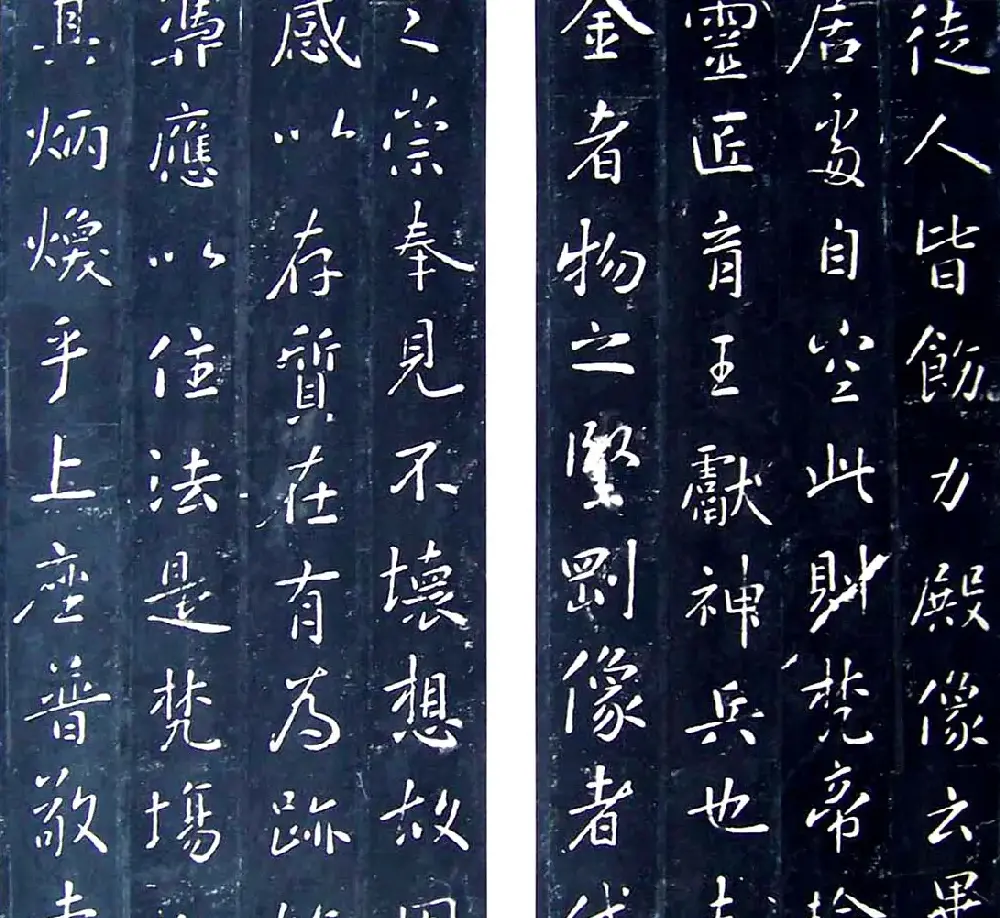 徒人皆飭力殿像云
居處自空此財梵帝
靈匠育王獻神兵也
金者物之堅剛像者
之崇奉見不壞想故
感以存質在有為跡
憑應以住法是梵場
其炳煥乎上座普敬